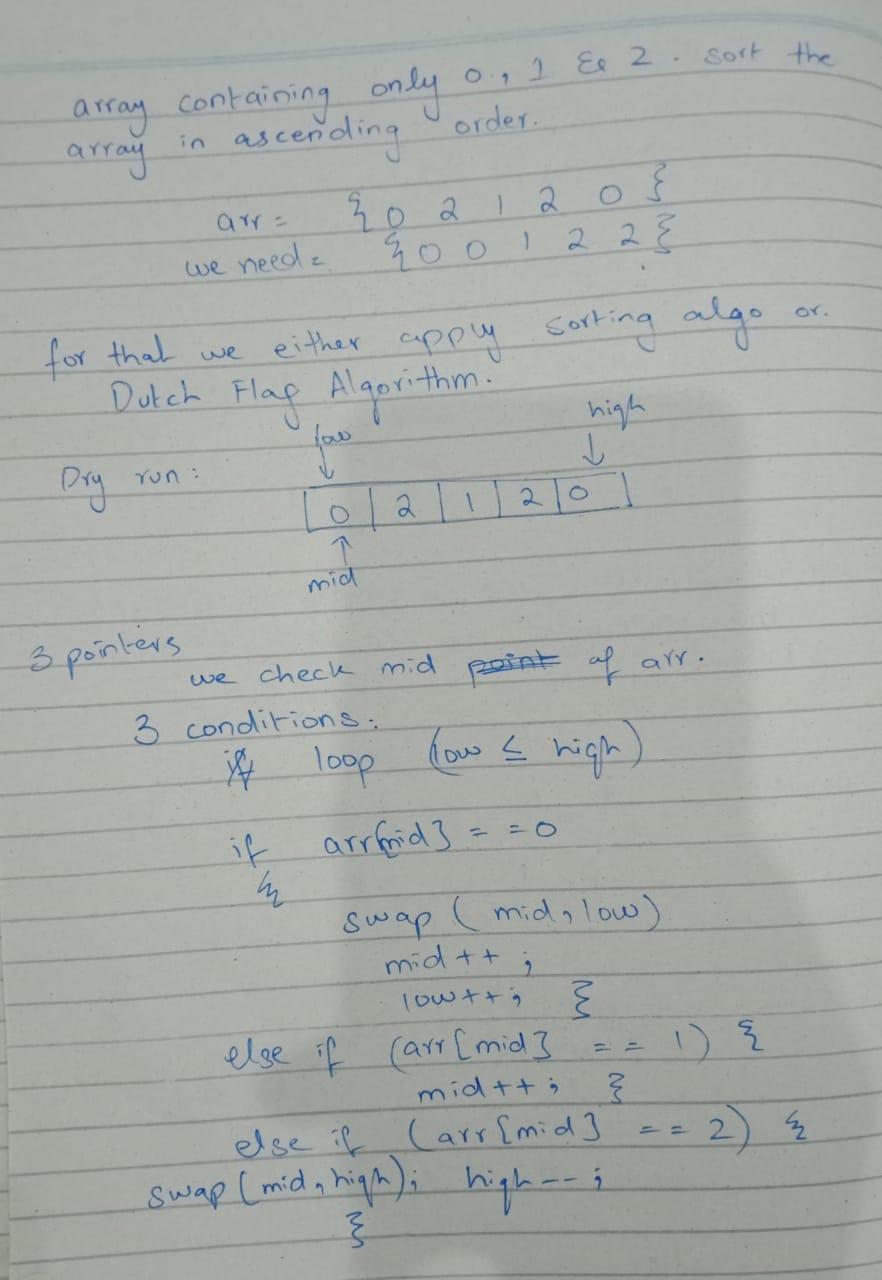 array containing only 0, 1 & 2. sort the
array in ascending order.
arr = {0 2 1 2 0}
we need = {0 0 1 2 2}
for that we either apply sorting algo or.
Dutch Flag Algorithm.
low high
Dry run :
0 | 2 | 1 | 2 | 0
mid
3 pointers
we check mid point of arr.
3 conditions:
if loop (low ≤ high)
if arr[mid] == 0
{
swap (mid, low)
mid++;
low++; }
else if (arr[mid] == 1) {
mid++; }
else if (arr[mid] == 2) {
swap (mid, high); high--;
}